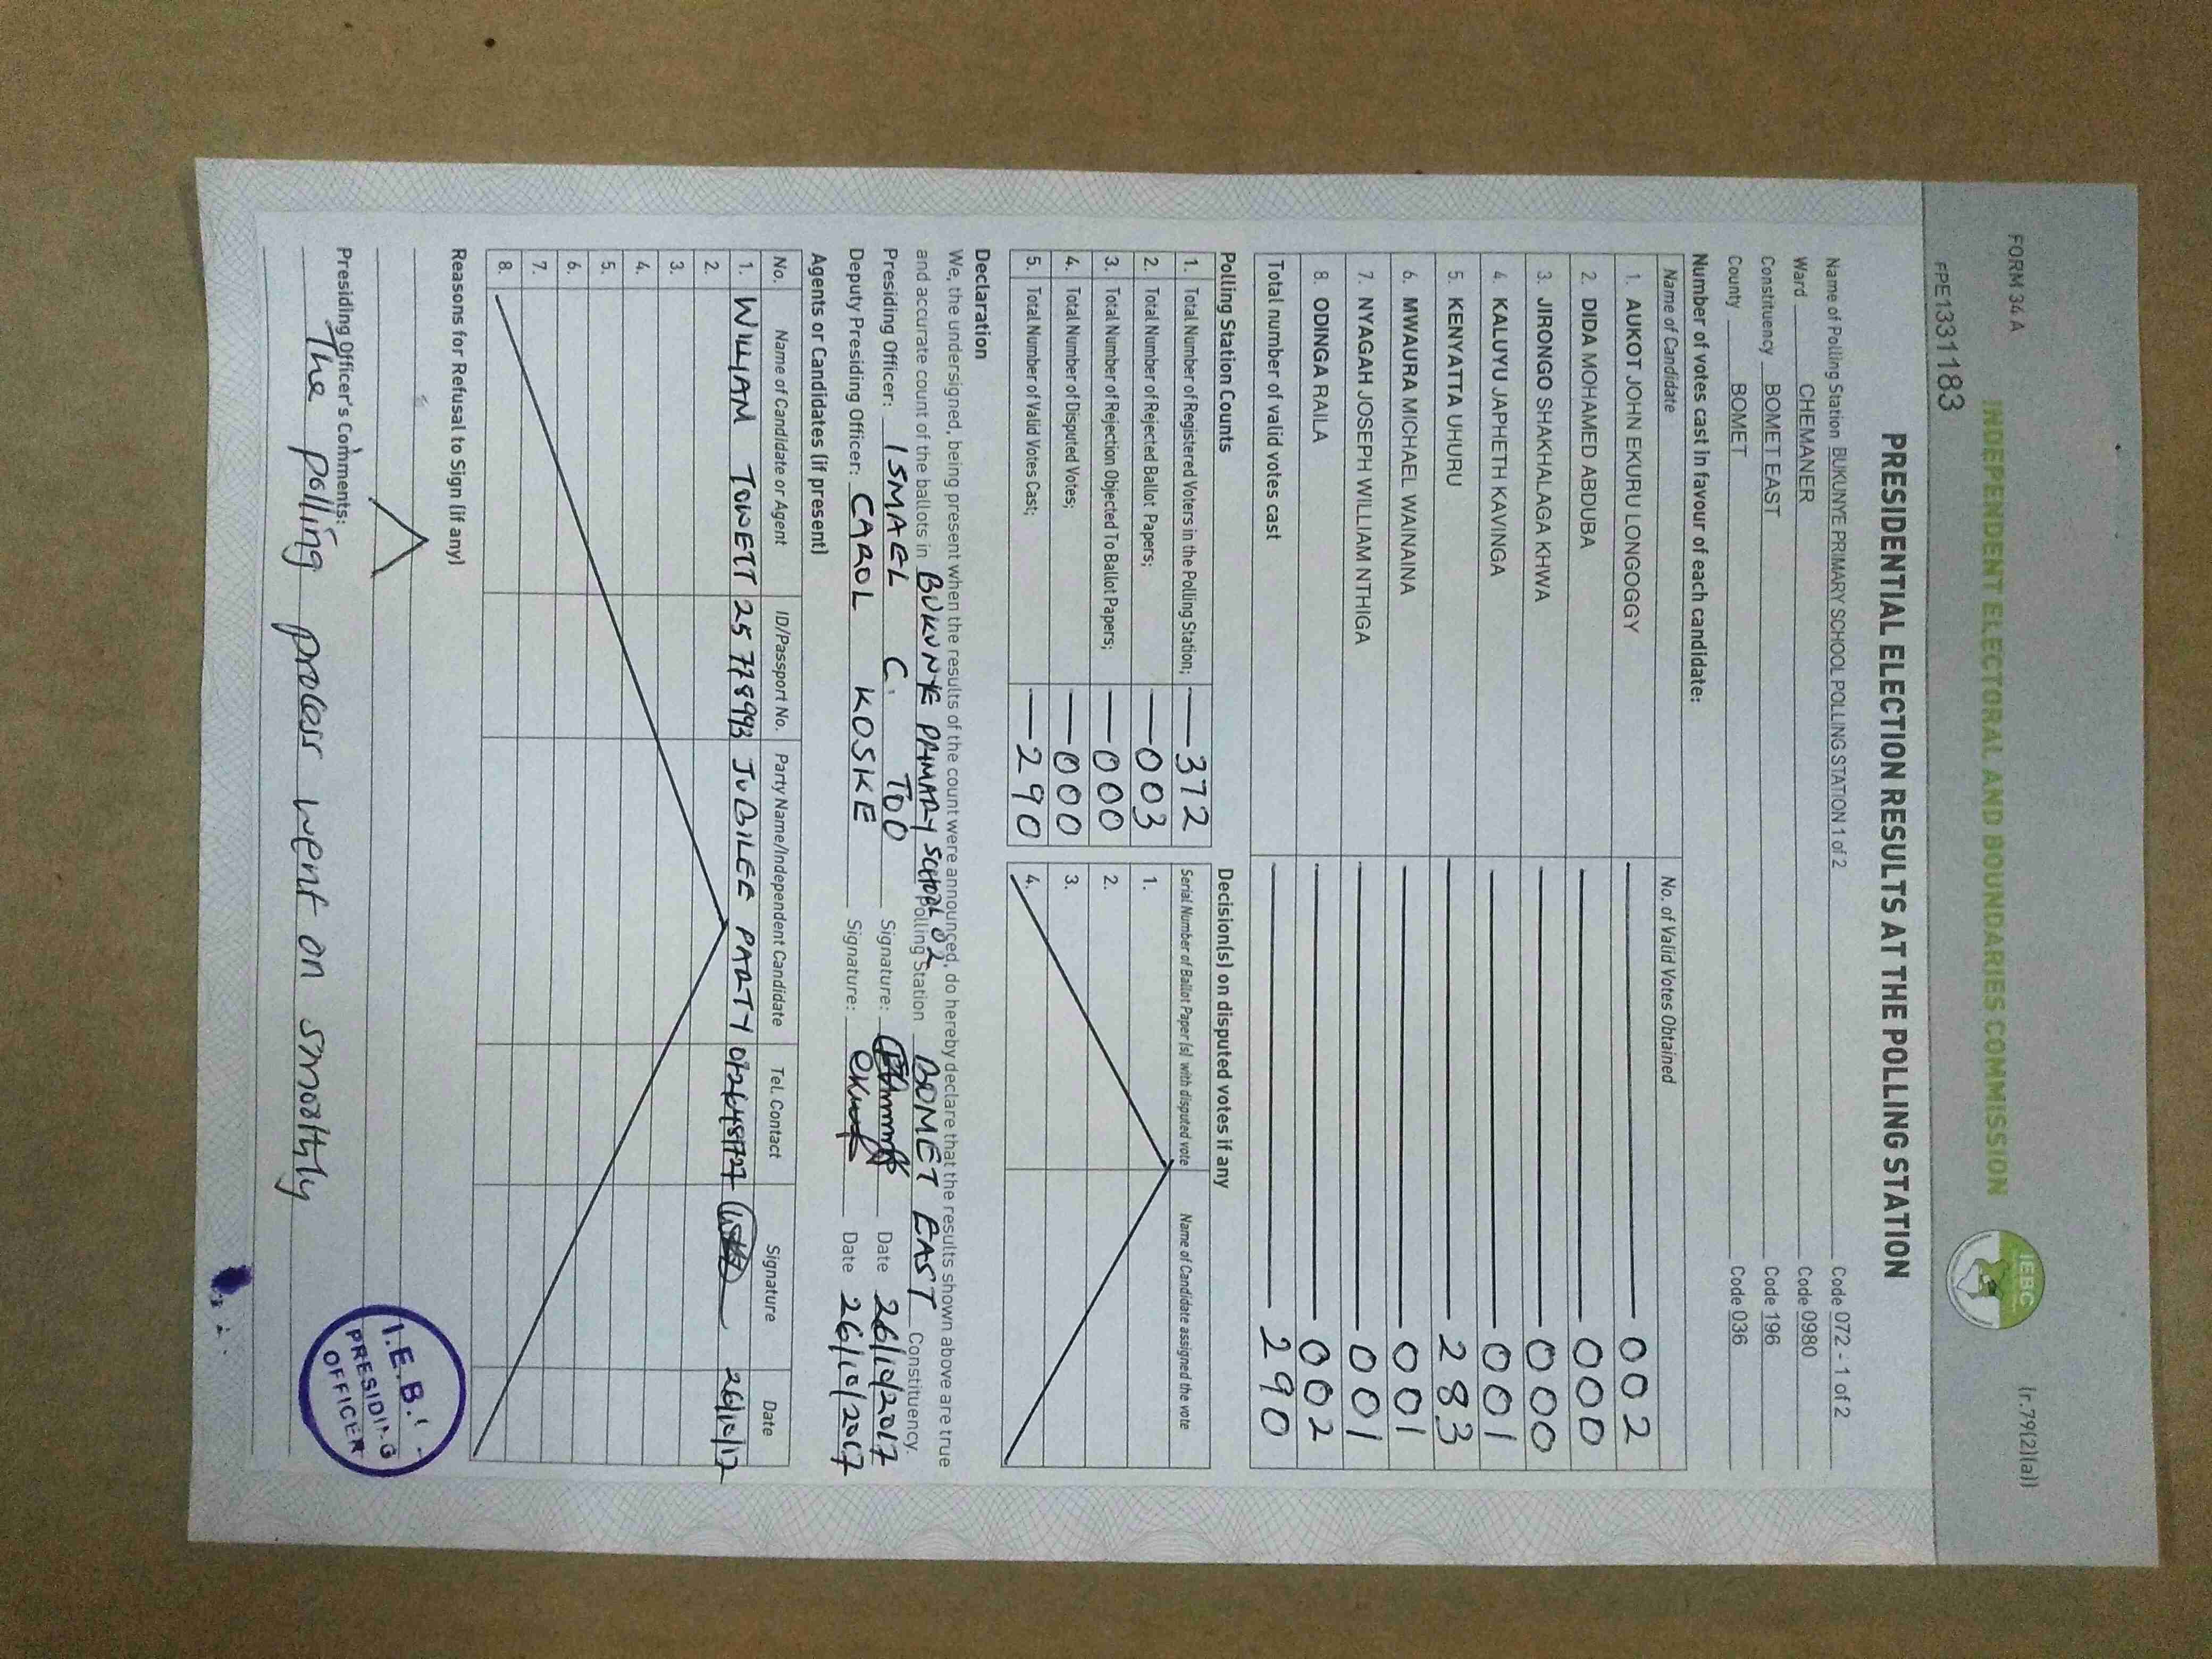 FORM 34A
(r.79(2)(a))
INDEPENDENT ELECTORAL AND BOUNDARIES COMMISSION
IEBC
FPE1331183
PRESIDENTIAL ELECTION RESULTS AT THE POLLING STATION
Name of Polling Station BUKUNYE PRIMARY SCHOOL POLLING STATION 1 of 2 Code 072 - 1 of 2
Ward CHEMANER Code 0980
Constituency BOMET EAST Code 196
County BOMET Code 036
Number of votes cast in favour of each candidate:
Name of Candidate No. of Valid Votes Obtained
1. AUKOT JOHN EKURU LONGOGGY 002
2. DIDA MOHAMED ABDUBA 000
3. JIRONGO SHAKHALAGA KHWA 000
4. KALUYU JAPHETH KAVINGA 001
5. KENYATTA UHURU 283
6. MWAURA MICHAEL WAINAINA 001
7. NYAGAH JOSEPH WILLIAM NTHIGA 001
8. ODINGA RAILA 002
Total number of valid votes cast 290
Polling Station Counts
1. Total Number of Registered Voters in the Polling Station; 372
2. Total Number of Rejected Ballot Papers; 003
3. Total Number of Rejection Objected To Ballot Papers; 000
4. Total Number of Disputed Votes; 000
5. Total Number of Valid Votes Cast; 290
Decision(s) on disputed votes if any
Serial Number of Ballot Paper(s) with disputed vote Name of Candidate assigned the vote
1.
2.
3.
4.
Declaration
We, the undersigned, being present when the results of the count were announced, do hereby declare that the results shown above are true
and accurate count of the ballots in BUKUNYE PRIMARY SCHOOL 02 Polling Station BOMET EAST Constituency.
Presiding Officer: ISMAEL C. TOO Signature: Date 26/10/2017
Deputy Presiding Officer: CAROL KOSKE Signature: Date 26/10/2017
Agents or Candidates (if present)
No. Name of Candidate or Agent ID/Passport No. Party Name/Independent Candidate Tel. Contact Signature Date
1. WILLIAM TOWETT 25778993 JUBILEE PARTY 26/10/17
2.
3.
4.
5.
6.
7.
8.
Reasons for Refusal to Sign (if any)
Presiding Officer's Comments:
The polling process went on smoothly
I.E.B.
PRESIDING
OFFICER